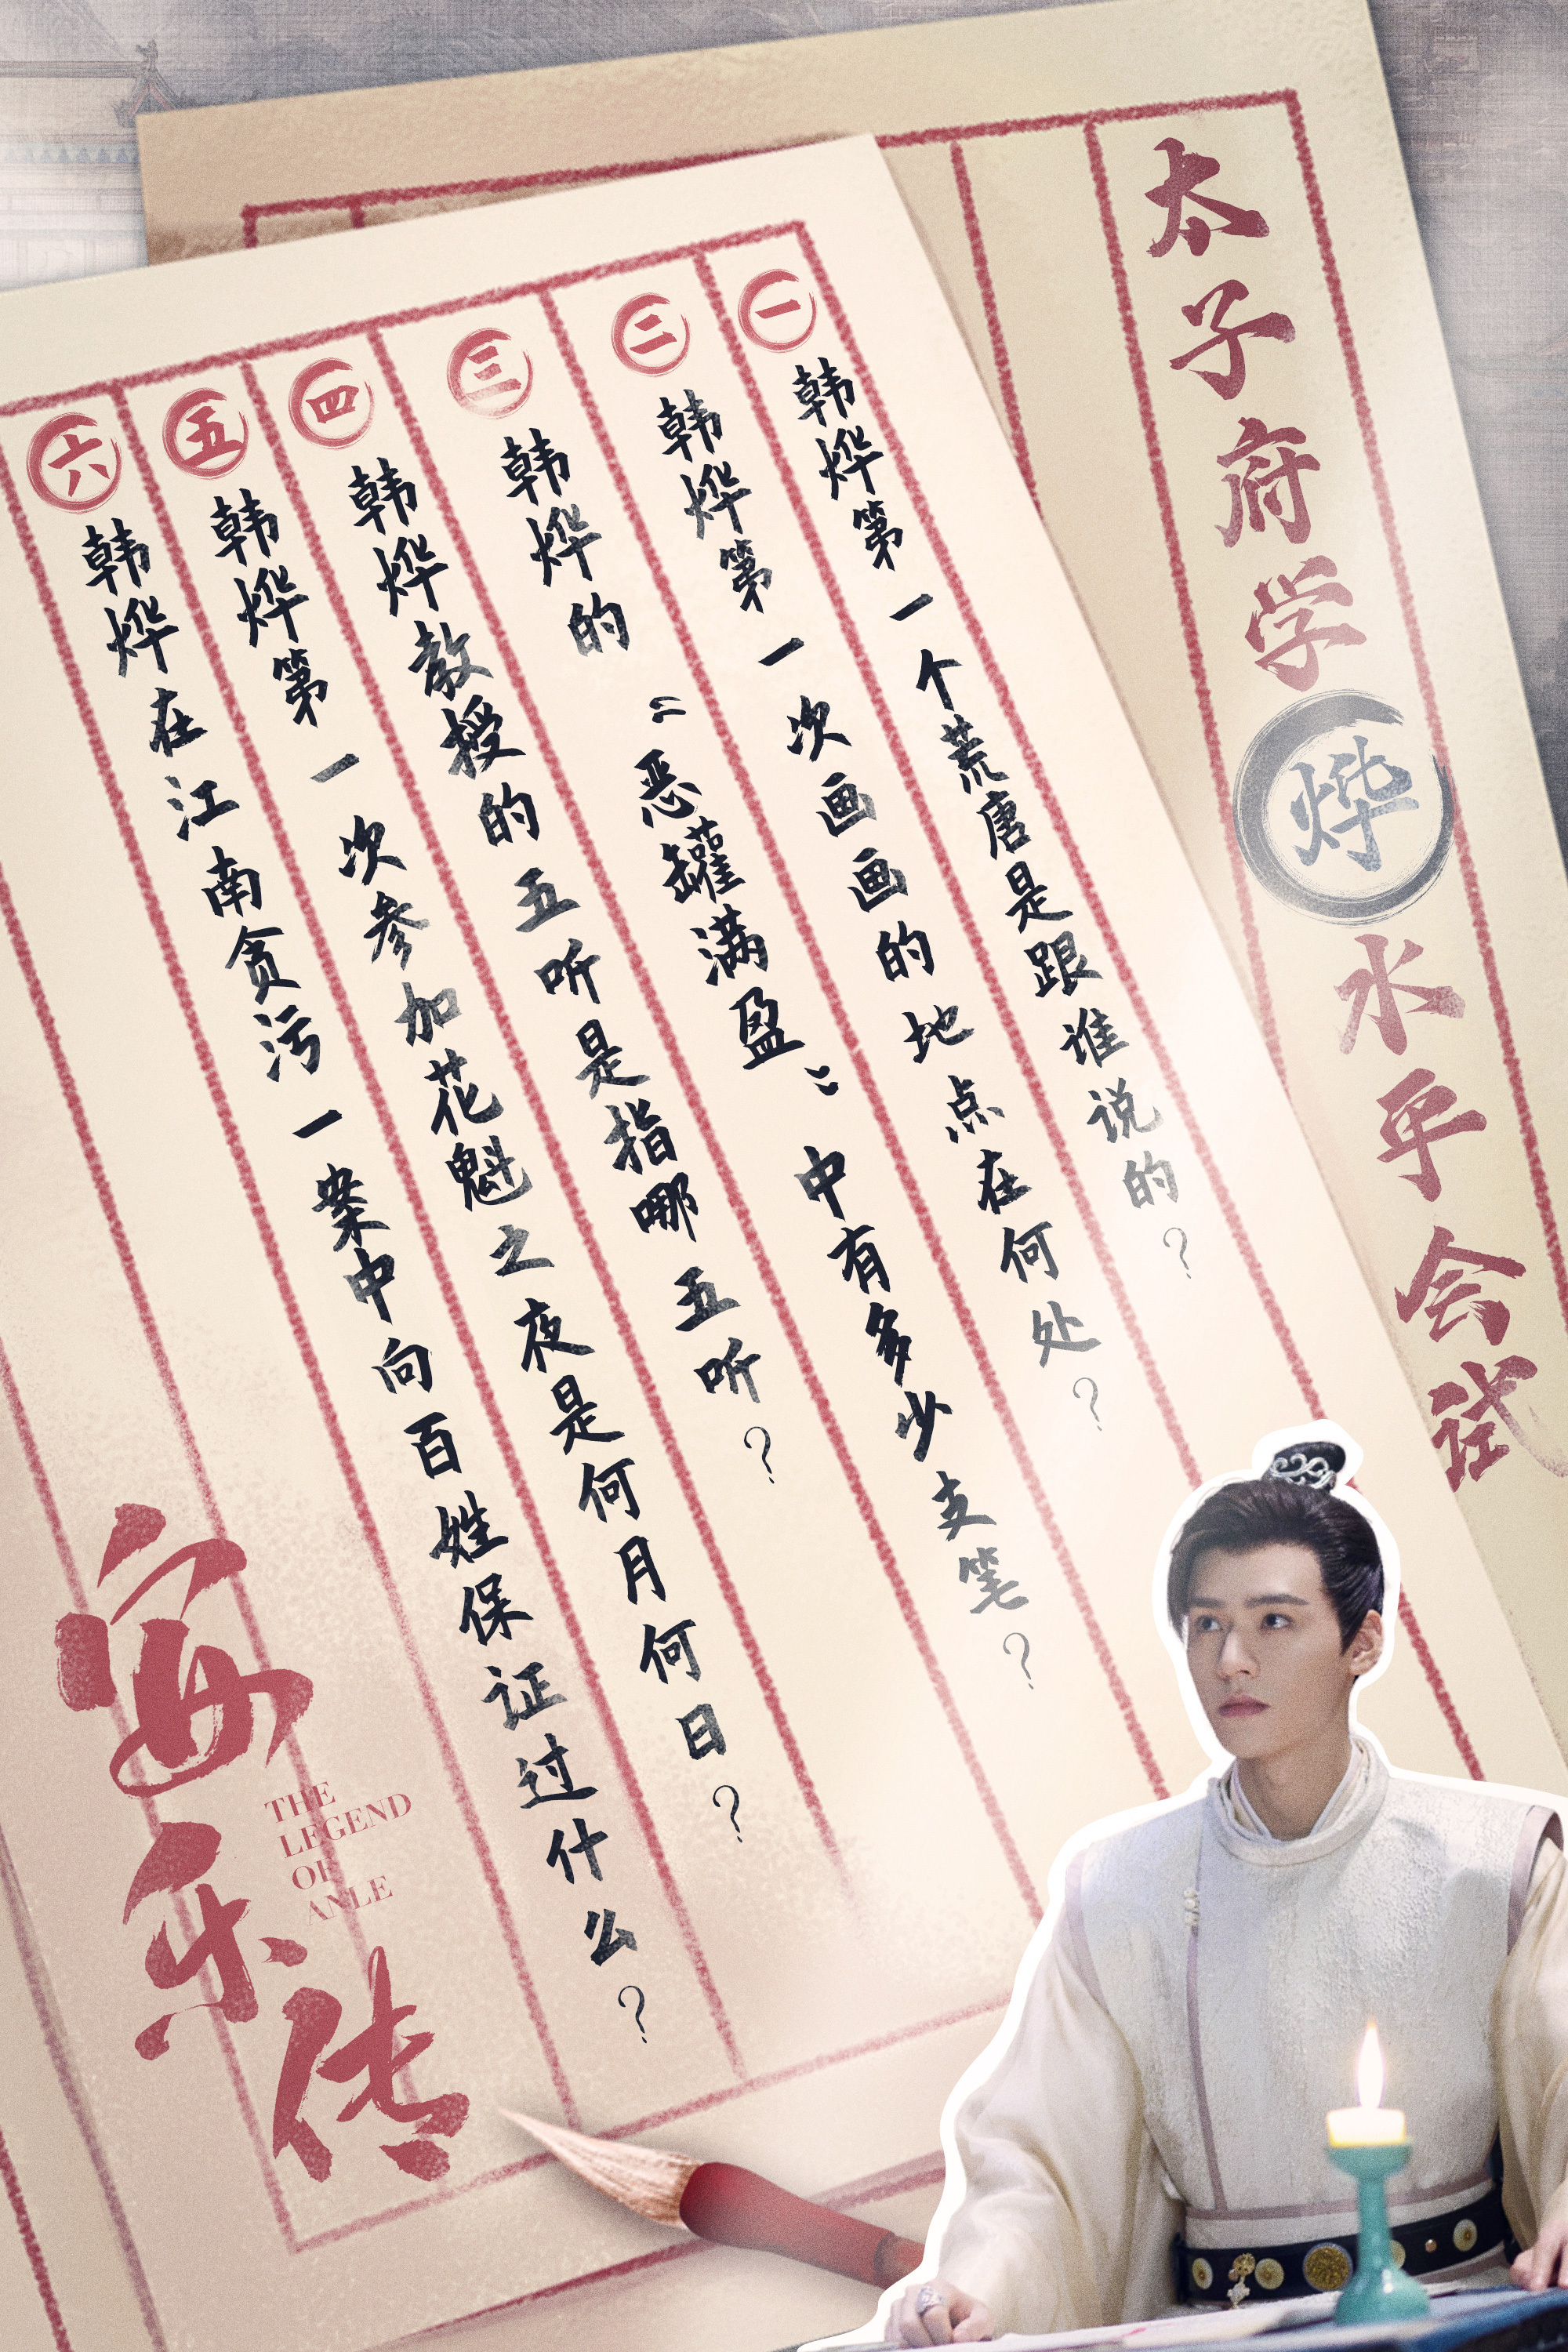 太子府学烨水平会试
一 韩烨第一个荒唐是跟谁说的？
二 韩烨第一次画画的地点在何处？
三 韩烨的“恶罐满盈”中有多少支笔？
四 韩烨教授的五听是指哪五听？
五 韩烨第一次参加花魁之夜是何月何日？
六 韩烨在江南贪污一案中向百姓保证过什么？
安乐传
THE
LEGEND
OF
ANLE